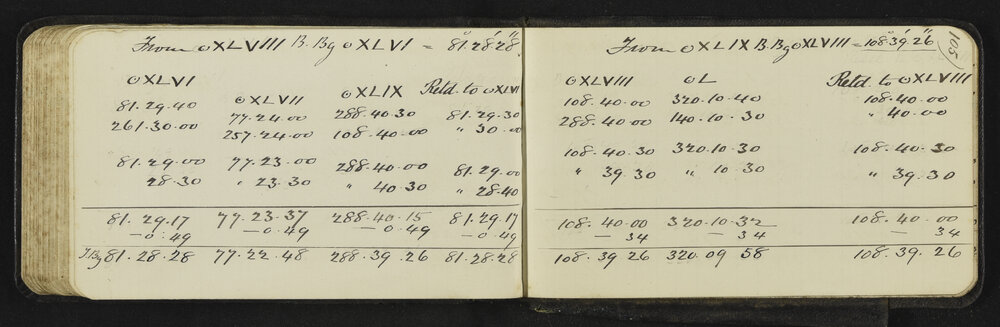 From ⊙XLVIII B. Bg ⊙XLVI = 81°.28'.28"
⊙XLVI ⊙XLVII ⊙XLIX Retd. to ⊙XLVI
81.29.40 77.24.00 288.40.30 81.29.30
261.30.00 257.24.00 108.40.00 " 30.00
81.29.00 77.23.00 288.40.00 81.29.00
28.30 " 23.30 " 40 30 " 28.40
81.29.17 77.23.37 288.40.15 81.29.17
—0.49 —0.49 —0.49 —0.49
T.Bg 81.28.28 77.22.48 288.39.26 81.28.28
105
From ⊙XLIX B. Bg ⊙XLVIII = 108°.39'.26"
⊙XLVIII ⊙L Retd. to ⊙XLVIII
108.40.00 320.10.40 108.40.00
288.40.00 140.10.30 " 40.00
108.40.30 320.10.30 108.40.30
" 39.30 " 10.30 " 39.30
108.40.00 320.10.32 108.40.00
— 34 — 34 — 34
108.39 26 320.09 58 108.39.26